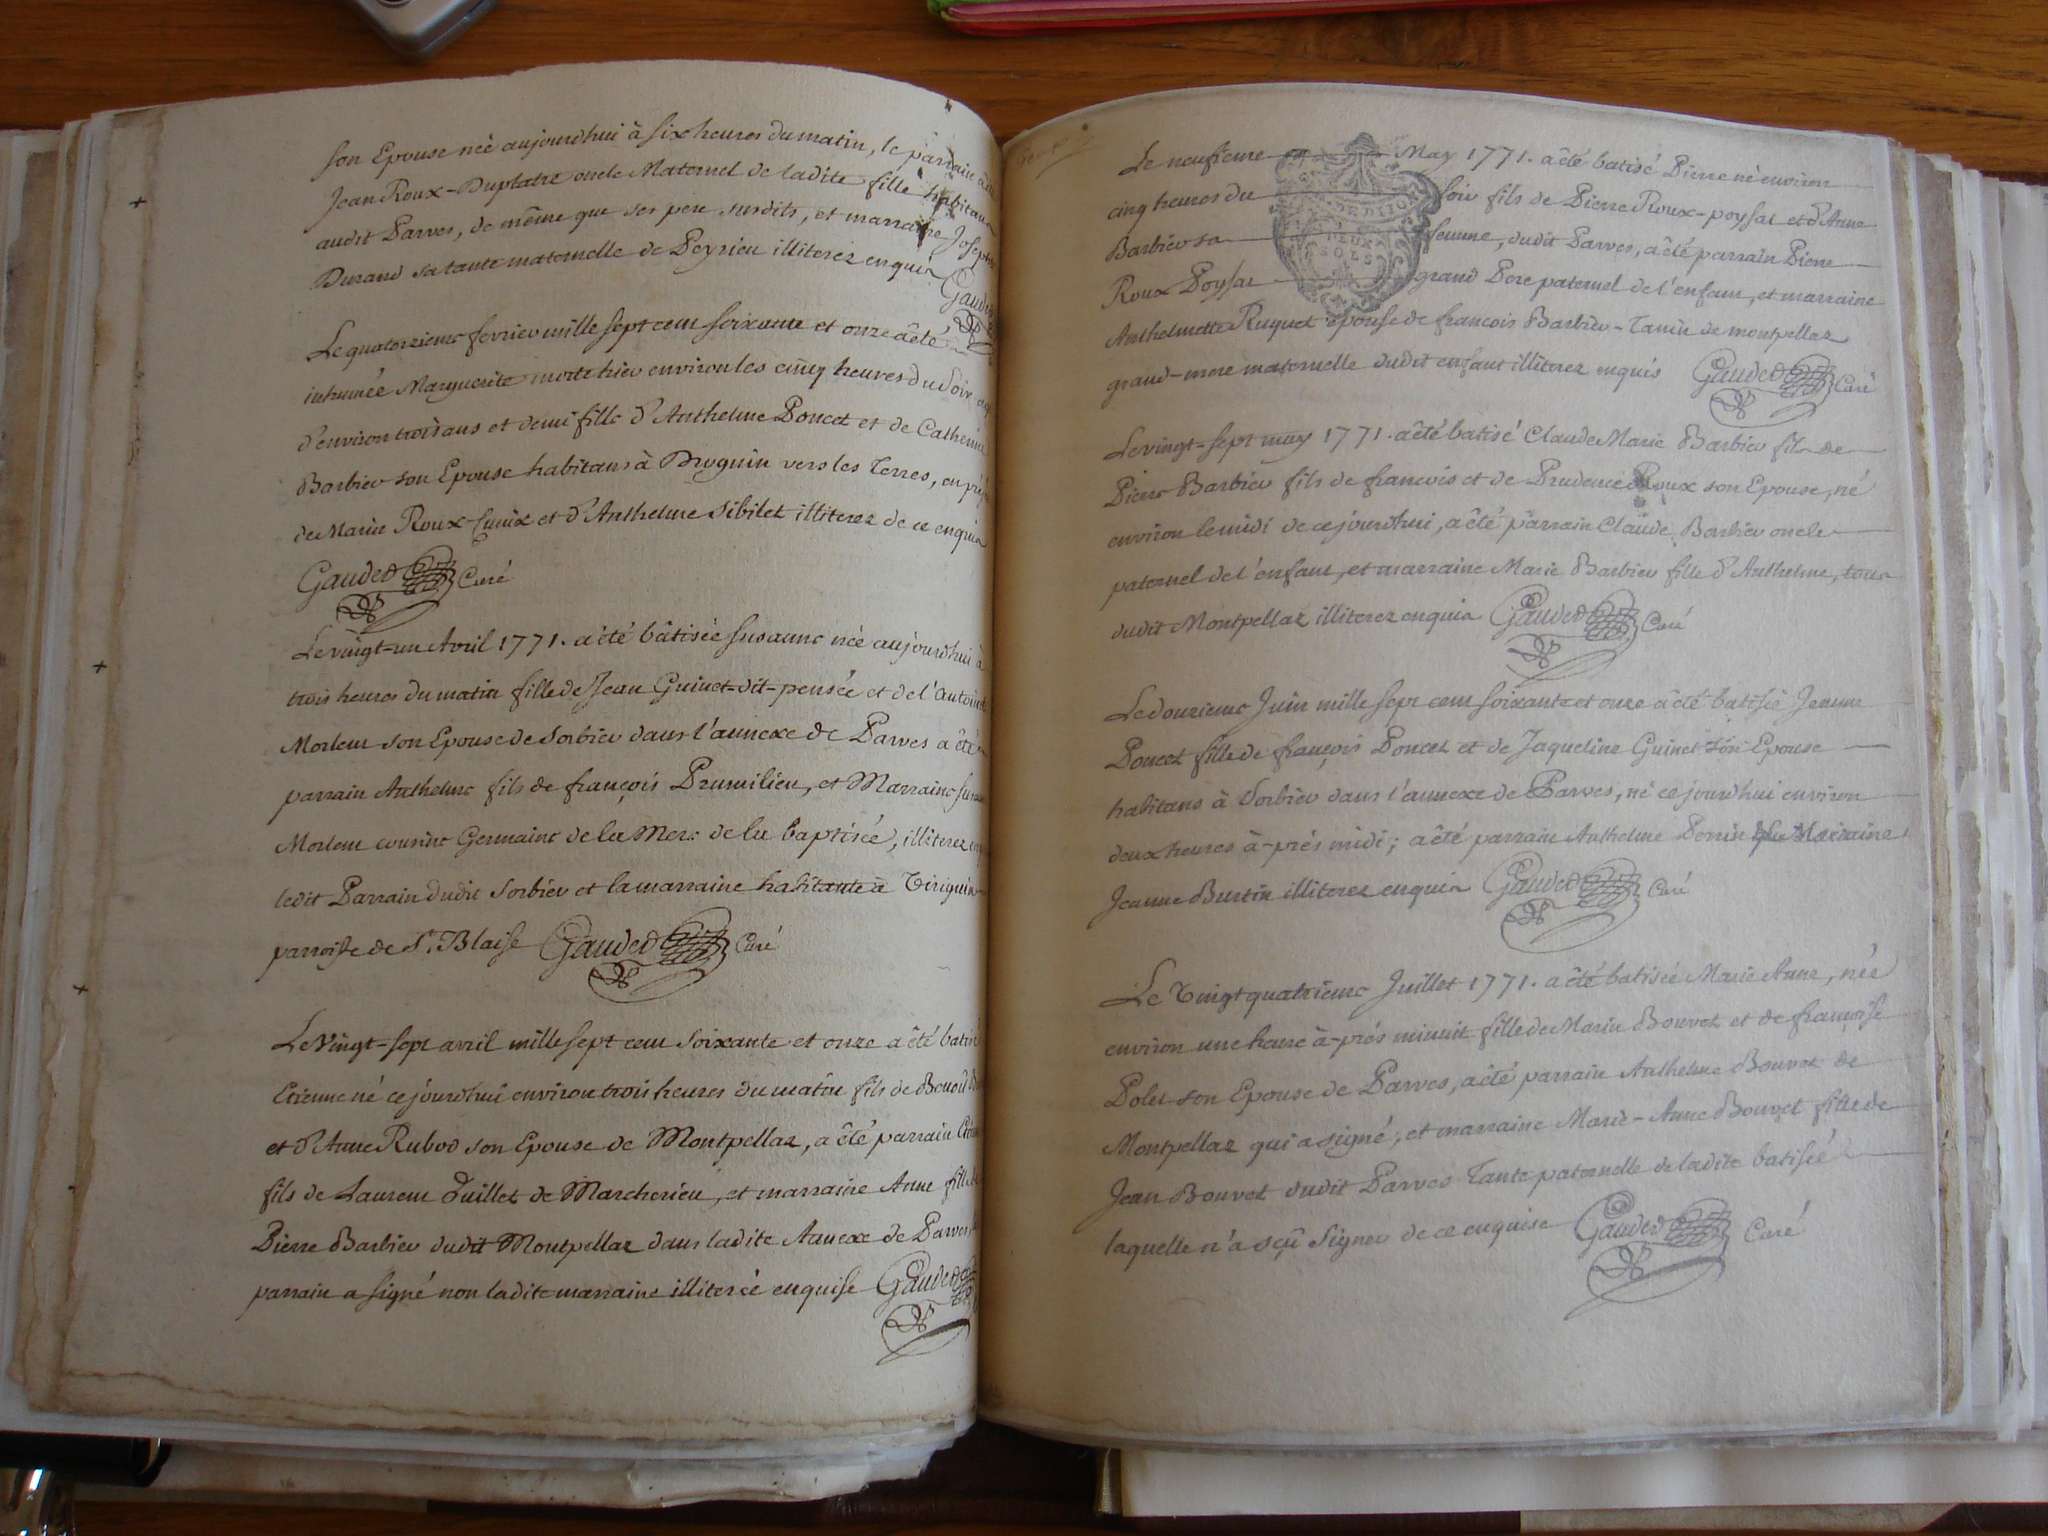 son Epouse née aujourdhui à six heures du matin, le parrain a été
Jean Roux-Duplatre oncle Maternel de ladite fille habitan
audit Parves, de même que ses pere susdits, et marraine Josephte
Durand sa tante maternelle de Peyrieu illiterez enquis
Gaudet
Le quatorzieme fevrier mille sept cent soixante et onze a êté
inhumée Marguerite morte hier environ les cinq heures du soir agé
d'environ trois ans et demi fille d'Anthelme Poncet et de Catherine
Barbier son Epouse habitans à Pruguin vers les Terres, en prés
de Marin Roux-Cunix et d'Anthelme Sibilet illiterez de ce enquis
Gauded Curé
Le vingt-un Avril 1771. a êté bâtisée Susanne née aujourdhui à
trois heures du matin fille de Jean Guinet-dit-pensée et de l'Antoinet
Morlem son Epouse de Sorbier dans l'annexe de Parves a êté
parrain Anthelme fils de françois Prumilieu, et Marraine Susan
Morlem cousine Germaine de la Mere de la baptisée, illiterez en
ledit Parrain dudit Sorbier et la marraine habitante à Tiriguin
parroisse de St. Blaise Gauded Curé
Le Vingt-sept avril mille sept cent soixante et onze a êté batisé
Etienne né ce jourdhui environ trois heures du matin fils de Benoit
et d'Anne Rubod son Epouse de Montpellaz, a êté parrain Etienne
fils de Laurent Juillet de Marcherieu, et marraine Anne fille de
Pierre Barbier dudit Montpellaz dans ladite Annexe de Parves
parrain a signé non ladite marraine illiterée enquise Gauded
Le neufieme May 1771. a êté batisé Pierre né environ
cinq heures du soir fils de Pierre Roux-poysat et d'Anne
Barbier sa femme, dudit Parves, a êté parrain Pierre
Roux Poysat grand Pere paternel de l'enfant, et marraine
Anthelmette Ruquet épouse de françois Barbier-Tanin de montpellaz
grand-mere maternelle dudit enfant illiterez enquis Gauded Curé
DEUX SOLS
Le vingt-sept may 1771. a êté batisé Claude Marie Barbier fils de
Pierre Barbier fils de francois et de Prudence Roux son Epouse, né
environ le midi de ce jourdhui, a êté parrain Claude Barbier oncle
paternel de l'enfant, et marraine Marie Barbier fille d'Anthelme, tous
dudit Montpellaz illiterez enquis Gauded Curé
Le douzieme Juin mille sept cent soixante et onze a êté batisée Jeanne
Poncet fille de françois Poncet et de Jaqueline Guinet son Epouse
habitans à Sorbier dans l'annexe de Parves, né ce jourdhui environ
deux heures à-prés midi; a êté parrain Anthelme Perrin et la Maraine
Jeanne Burtin illiterez enquis Gauded Curé
Le Vingt quatrieme Juillet 1771. a êté batisée Marie Anne, née
environ une heure à-prés minuit fille de Marin Bouvet et de françoise
Polet son Epouse de Parves, a êté parrain Anthelme Bouvet de
Montpellaz qui a signé, et marraine Marie-Anne Bouvet fille de
Jean Bouvet dudit Parves Tante paternelle de ladite batisée
laquelle n'a sçû signer de ce enquise Gauded Curé